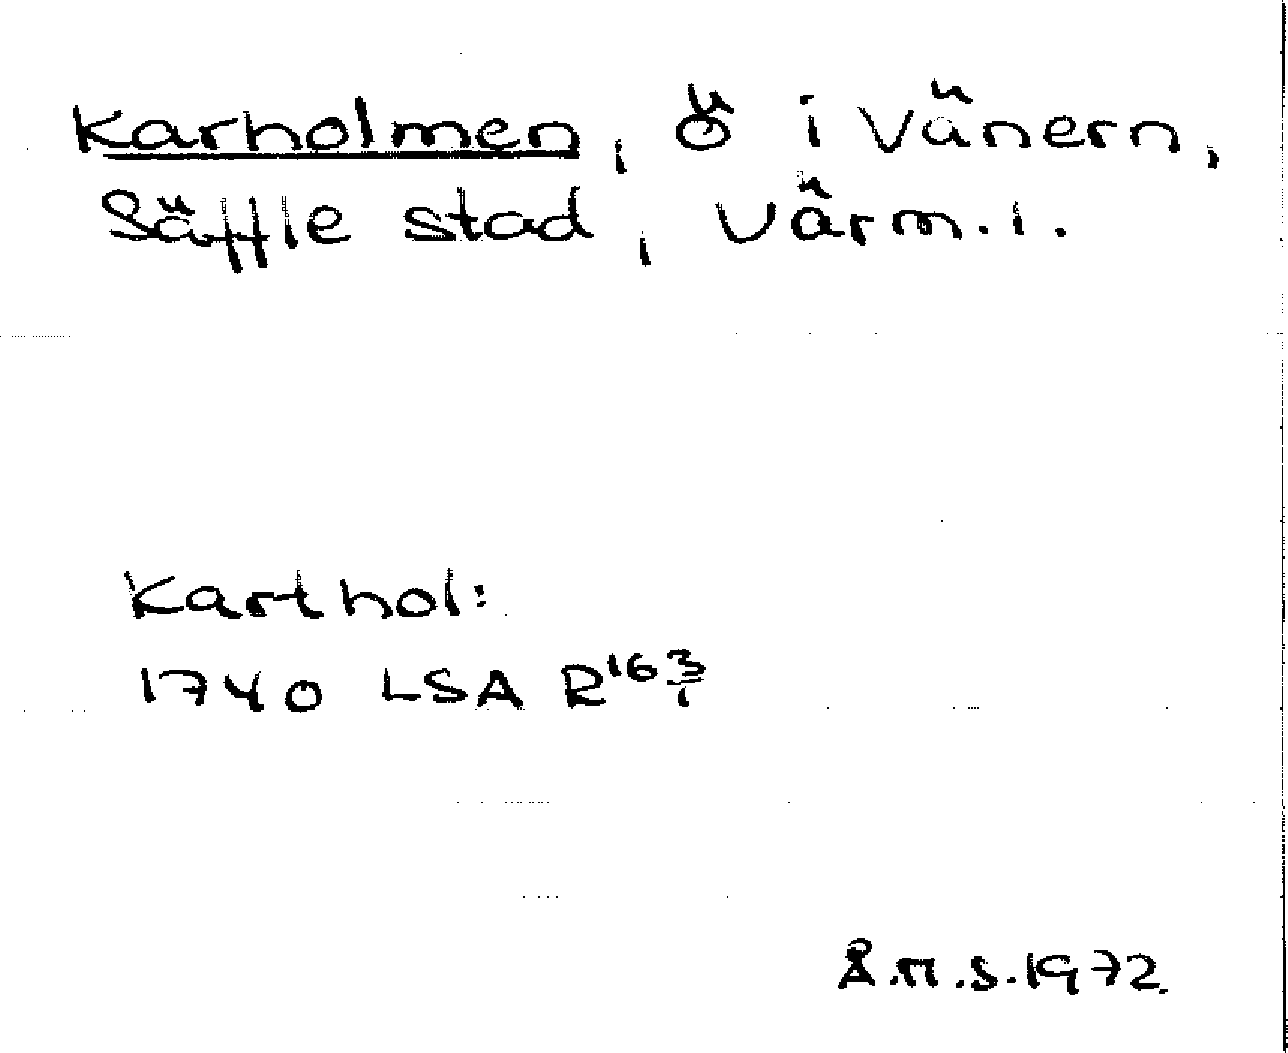 Karholmen, ö i Vänern,
Säffle stad, Värm. l.
Karthol:
1740 LSA R 16 3/1
Å.M.S. 1972.